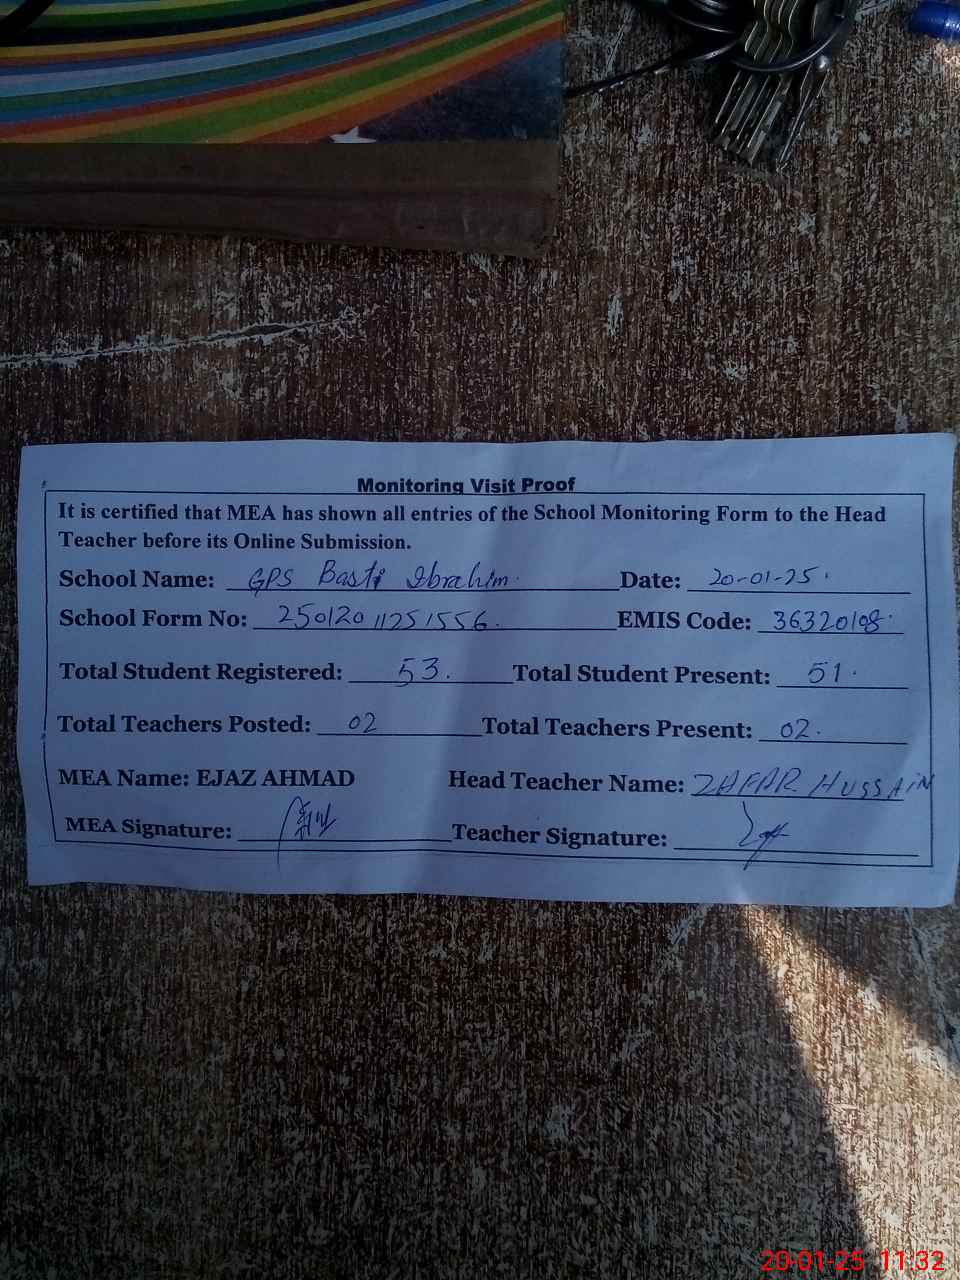 Monitoring Visit Proof
It is certified that MEA has shown all entries of the School Monitoring Form to the Head
Teacher before its Online Submission.
School Name: GPS Basti Ibrahim. Date: 20-01-25.
School Form No: 250120 11251556. EMIS Code: 36320108.
Total Student Registered: 53. Total Student Present: 51.
Total Teachers Posted: 02 Total Teachers Present: 02.
MEA Name: EJAZ AHMAD Head Teacher Name: ZAFAR HUSSAIN
MEA Signature: Teacher Signature:
20-01-25 11:32